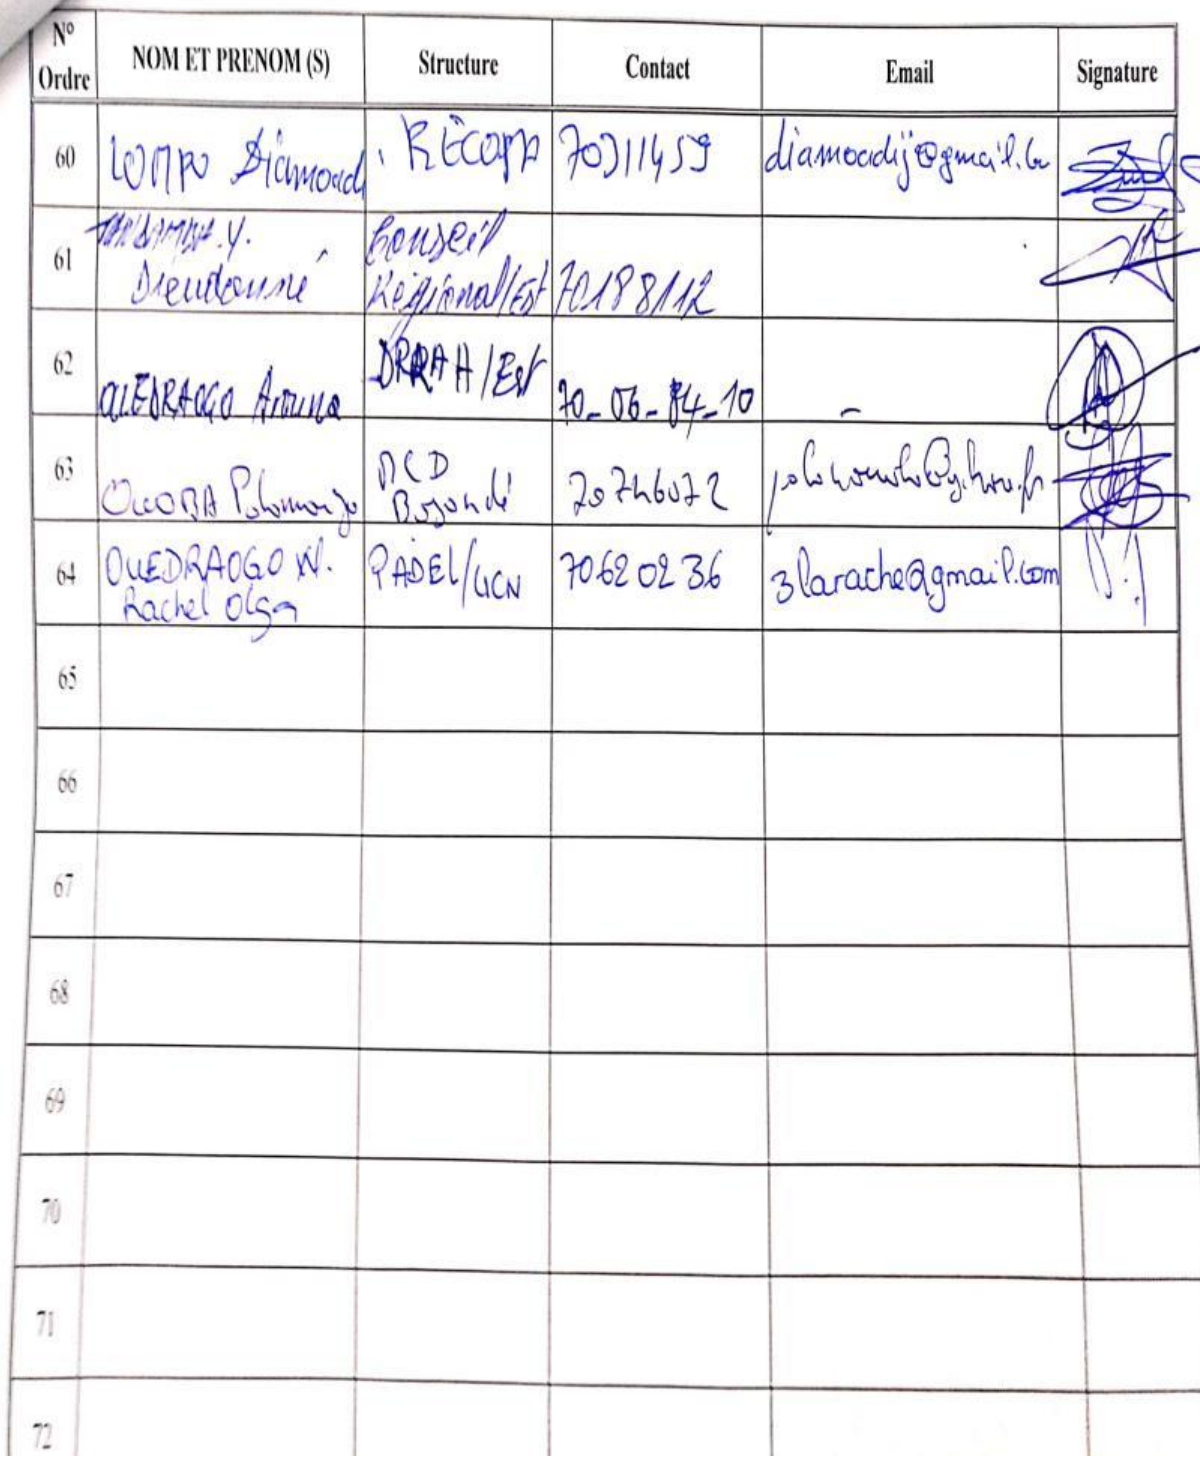 N° Ordre NOM ET PRENOM (S) Structure Contact Email Signature
60 LOMPO Diamoadi RECOPA 70311459 diamoadij@gmail.com
61 Y. Dieudonné Conseil Régional/Est 70188112
62 OUEDRAOGO Arouna DRRAH/Est 70-06-84-10 –
63 OUOBA 20746072
64 OUEDRAOGO W. Rachel Olga PADEL/UCN 70620236 3larache@gmail.com
65
66
67
68
69
70
71
72